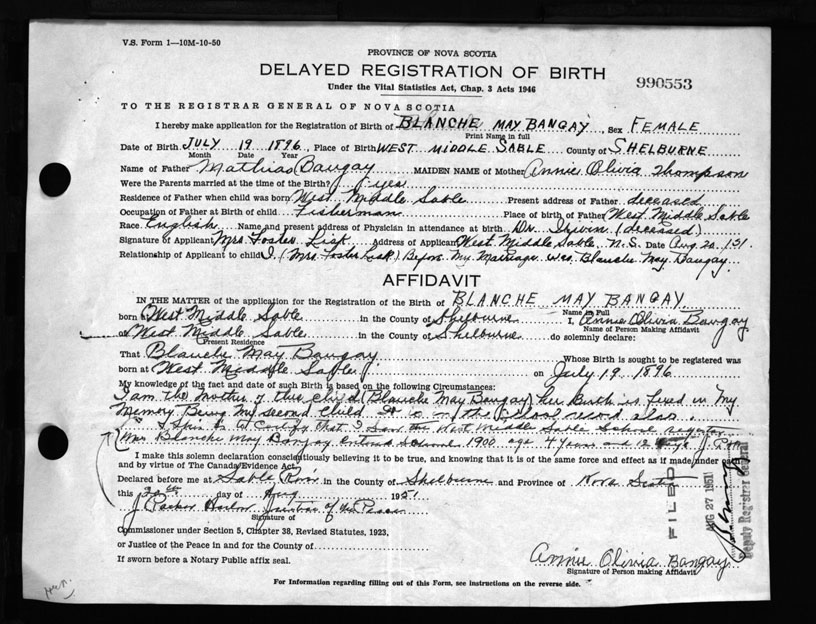 V.S. Form 1—10M-10-50
PROVINCE OF NOVA SCOTIA
DELAYED REGISTRATION OF BIRTH
990553
Under the Vital Statistics Act, Chap. 3 Acts 1946
TO THE REGISTRAR GENERAL OF NOVA SCOTIA
I hereby make application for the Registration of Birth of BLANCHE MAY BANGAY, Sex FEMALE
Print Name in full
Date of Birth JULY 19 1896, Place of Birth WEST MIDDLE SABLE County of SHELBURNE
Month Date Year
Name of Father Mathias Bangay MAIDEN NAME of Mother Annie Olivia Thompson
Were the Parents married at the time of the Birth? yes
Residence of Father when child was born West Middle Sable Present address of Father deceased
Occupation of Father at Birth of child Fisherman Place of birth of Father West Middle Sable
Race English Name and present address of Physician in attendance at birth Dr. (deceased)
Signature of Applicant Mrs Foster Lisk Address of Applicant West Middle Sable, N.S. Date Aug. 20, '51.
Relationship of Applicant to child I (Mrs Foster Lisk) Before My Marriage was Blanche May Bangay.
AFFIDAVIT
IN THE MATTER of the application for the Registration of the Birth of BLANCHE MAY BANGAY
Name in Full
born at West Middle Sable in the County of Shelburne I, Annie Olivia Bangay
Name of Person Making Affidavit
of West Middle Sable in the County of Shelburne do solemnly declare:
Present Residence
That Blanche May Bangay Whose Birth is sought to be registered was
born at West Middle Sable on July 19 1896
My knowledge of the fact and date of such Birth is based on the following Circumstances:
I am the mother of this child (Blanche May Bangay) her Birth is fixed in my
Memory Being My second Child. It is in the school record also.
that I saw the West Middle Sable School register
Blanche May Bangay entered school 1900 age 4 years and
I make this solemn declaration conscientiously believing it to be true, and knowing that it is of the same force and effect as if made under oath
and by virtue of The Canada Evidence Act.
Declared before me at Sable River in the County of Shelburne and Province of Nova Scotia
this 20th day of Aug 1951
J Justice of the Peace
Signature of
Commissioner under Section 5, Chapter 38, Revised Statutes, 1923,
or Justice of the Peace in and for the County of
If sworn before a Notary Public affix seal.
FILED
AUG 27 1951
Deputy Registrar General
Annie Olivia Bangay
Signature of Person making Affidavit
For Information regarding filling out of this Form, see instructions on the reverse side.